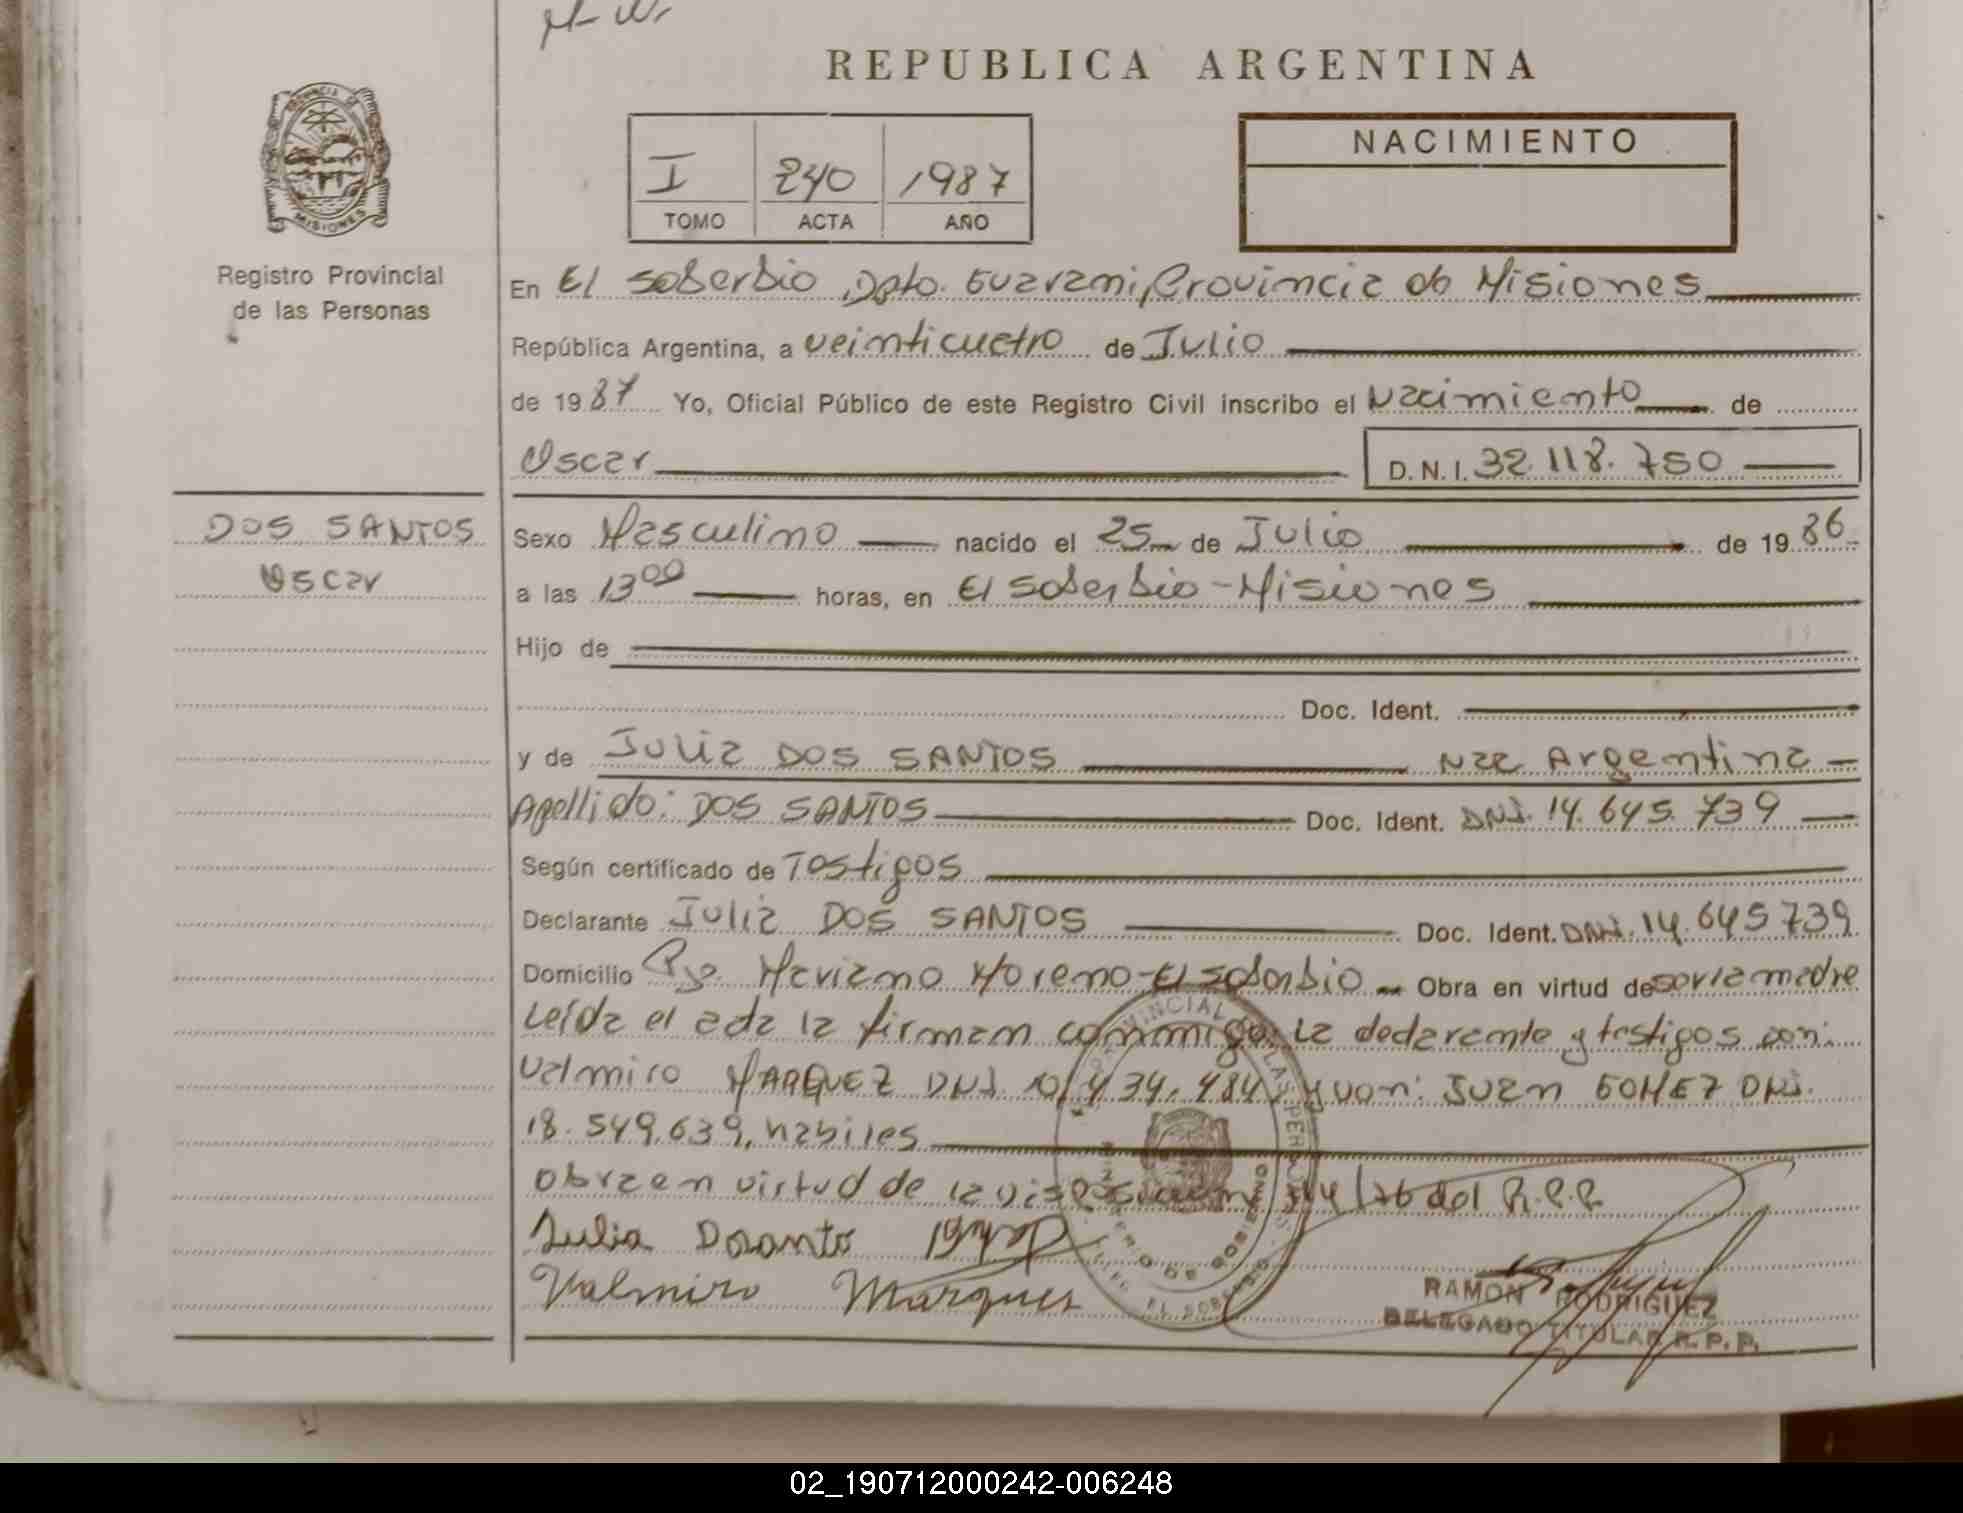 REPUBLICA ARGENTINA
PROVINCIA DE MISIONES
Registro Provincial
de las Personas
I 240 1987
TOMO ACTA AÑO
NACIMIENTO
En El Soberbio Dpto. Guarani, Provincia de Misiones
República Argentina, a veinticuatro de Julio
de 1987 Yo, Oficial Público de este Registro Civil inscribo el Nacimiento de
Oscar D.N.I. 32.118.750
DOS SANTOS
Oscar
Sexo Masculino nacido el 25 de Julio de 1986
a las 13 00 horas, en El Soberbio - Misiones
Hijo de
Doc. Ident.
y de Julia DOS SANTOS Nac Argentina
Apellido: DOS SANTOS Doc. Ident. DNI. 14.645.739
Según certificado de Testigos
Declarante Julia DOS SANTOS Doc. Ident. DNI. 14.645739
Domicilio Pje. Mariano Moreno - El Soberbio Obra en virtud de ser la madre
Leída el acta la firman conmigo la declarante y testigos don:
Valmiro MARQUEZ DNI 10.434.484 y don: Juan GOMEZ DNI.
18.549.639, habiles
Obra en virtud de la Disposicion /76 del R.P.P.
Julia Dosanto
Valmiro Marques
RAMON RODRIGUEZ
DELEGADO TITULAR R.P.P.
02_190712000242-006248